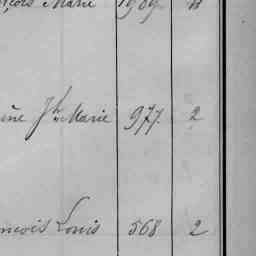 Marie 1909
Jh Marie 977. 2
ncois Louis 568 2